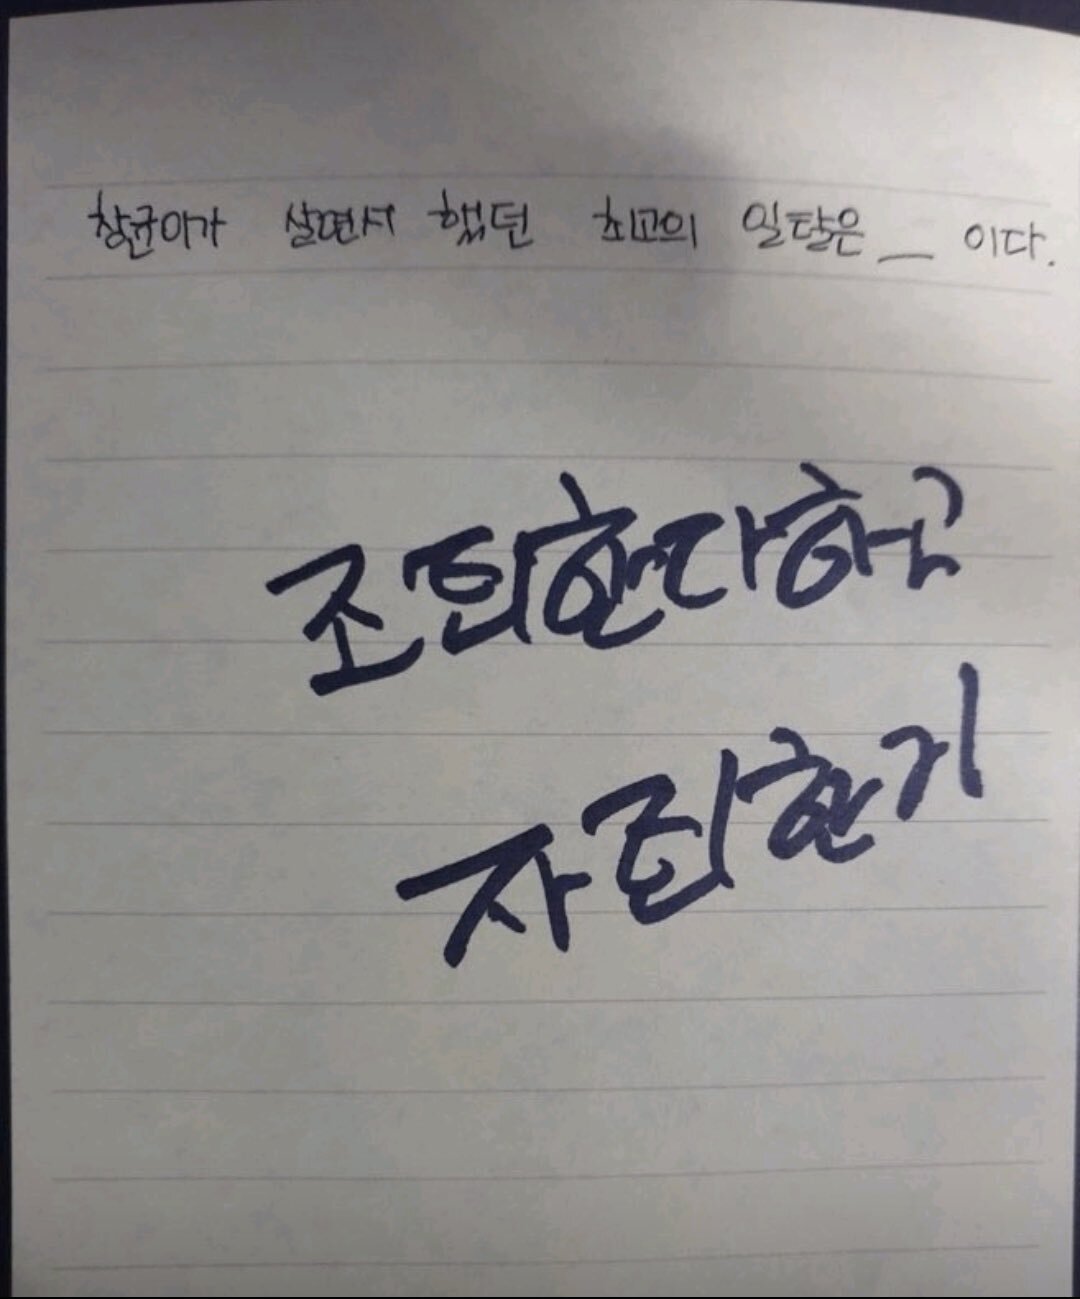 창균아가 살면서 했던 최고의 일탈은 __ 이다.
조퇴한다하고
자퇴한기